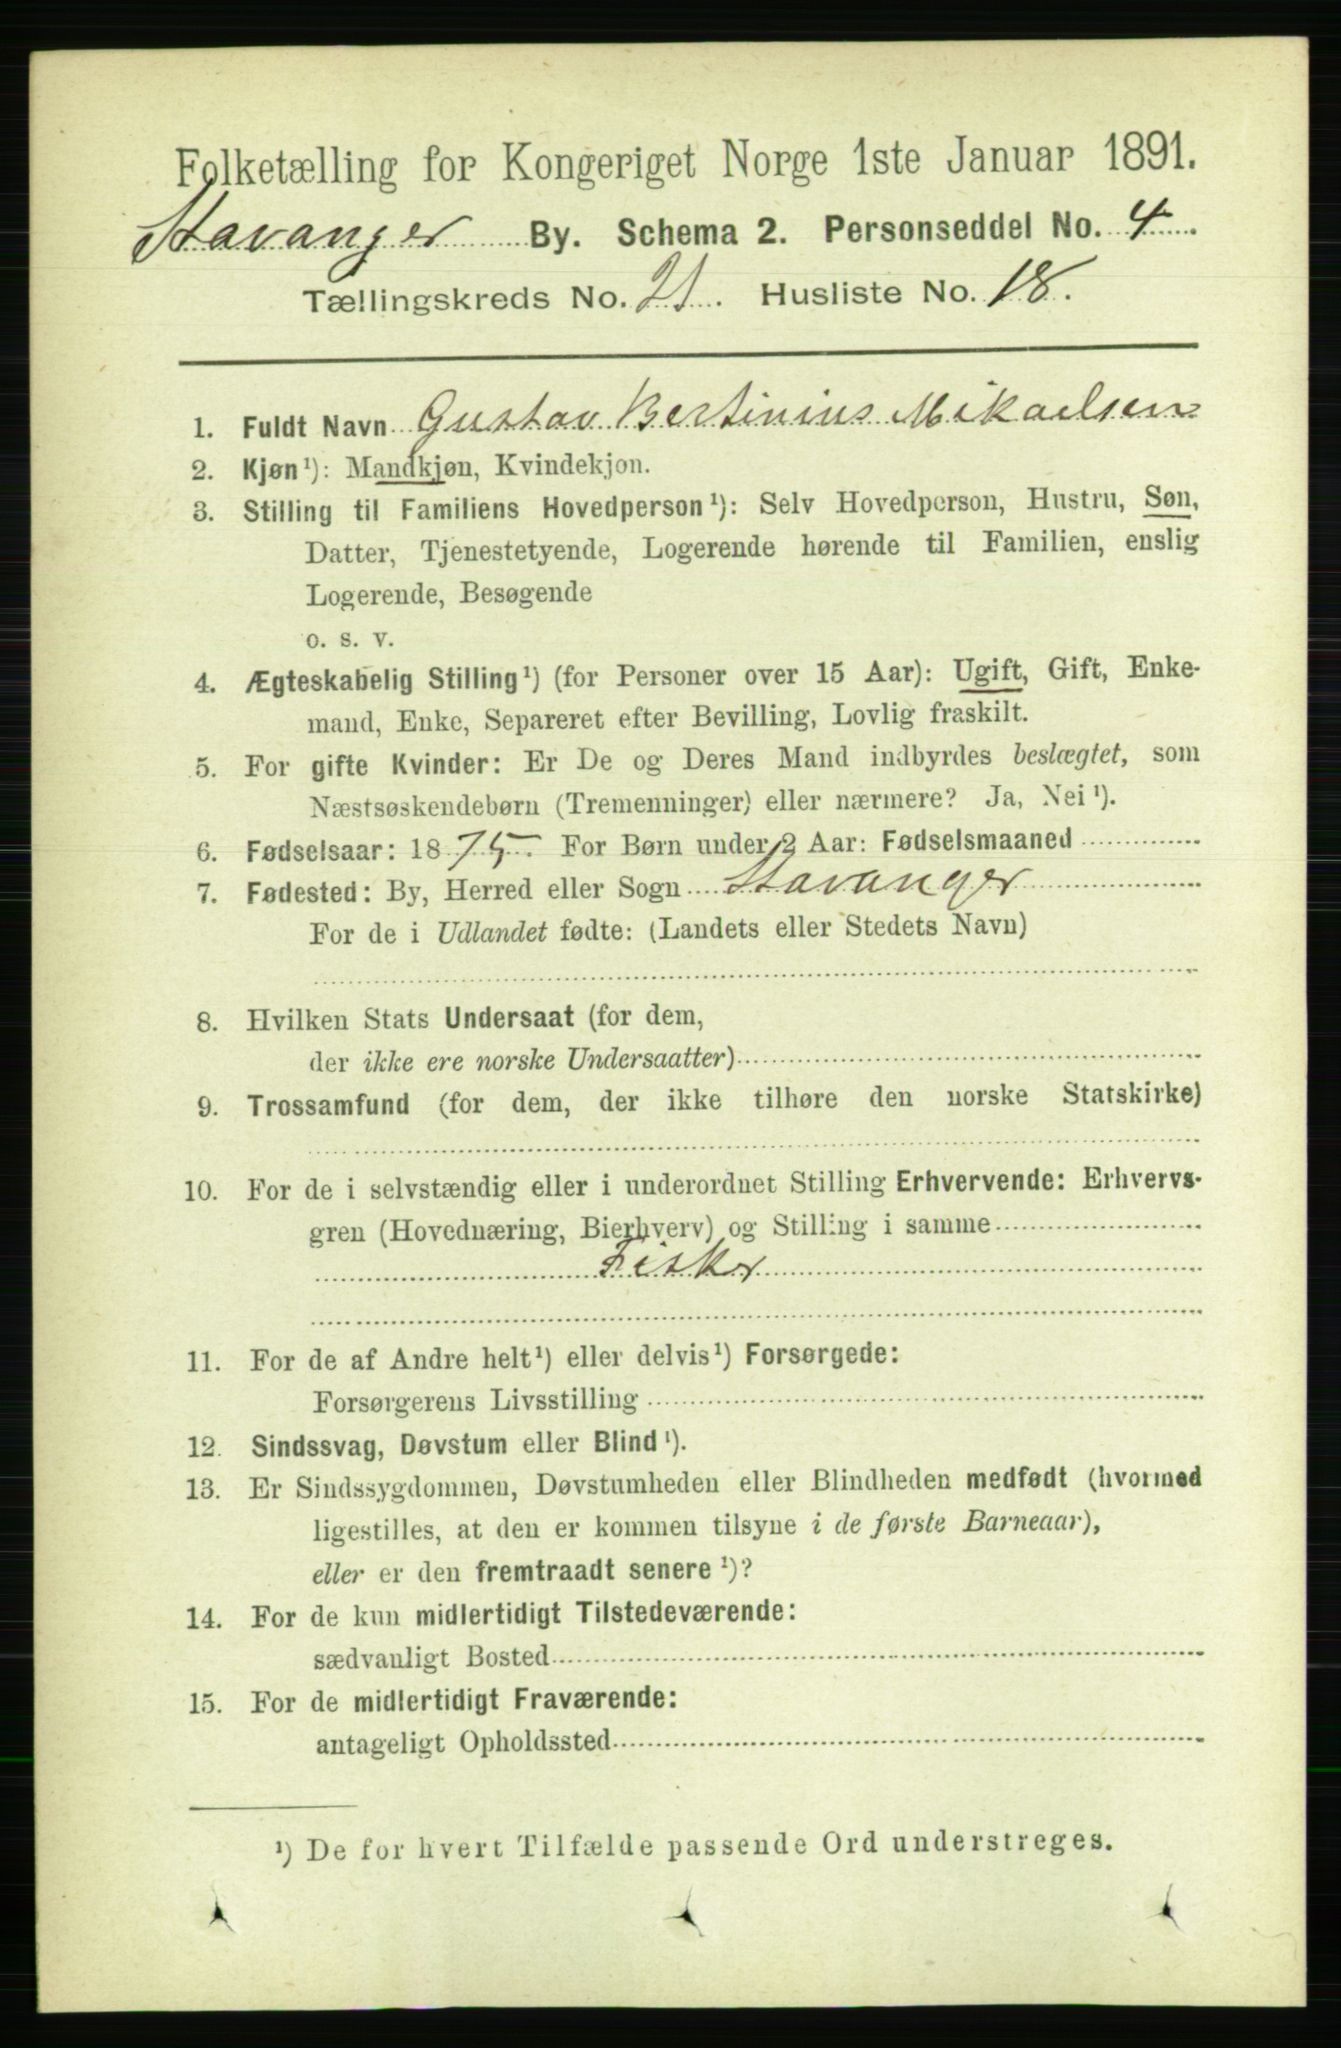 Folketælling for Kongeriget Norge 1ste Januar 1891.
Stavanger By. Schema 2. Personseddel No. 4
Tællingskreds No. 21. Husliste No. 18.
1. Fuldt Navn Gustav Bertinius Mikaelsen
2. Kjøn¹): Mandkjøn, Kvindekjon.
3. Stilling til Familiens Hovedperson¹): Selv Hovedperson, Hustru, Søn,
Datter, Tjenestetyende, Logerende hørende til Familien, enslig
Logerende, Besøgende
o. s. v.
4. Ægteskabelig Stilling¹) (for Personer over 15 Aar): Ugift, Gift, Enke-
mand, Enke, Separeret efter Bevilling, Lovlig fraskilt.
5. For gifte Kvinder: Er De og Deres Mand indbyrdes beslægtet, som
Næstsøskendebørn (Tremenninger) eller nærmere? Ja, Nei¹).
6. Fødselsaar: 1875. For Børn under 2 Aar: Fødselsmaaned
7. Fødested: By, Herred eller Sogn Stavanger
For de i Udlandet fødte: (Landets eller Stedets Navn)
8. Hvilken Stats Undersaat (for dem,
der ikke ere norske Undersaatter)
9. Trossamfund (for dem, der ikke tilhøre den norske Statskirke)
10. For de i selvstændig eller i underordnet Stilling Erhvervende: Erhvervs-
gren (Hovednæring, Bierhverv) og Stilling i samme
Fisker
11. For de af Andre helt¹) eller delvis¹) Forsørgede:
Forsørgerens Livsstilling
12. Sindssvag, Døvstum eller Blind¹).
13. Er Sindssygdommen, Døvstumheden eller Blindheden medfødt (hvormed
ligestilles, at den er kommen tilsyne i de første Barneaar),
eller er den fremtraadt senere¹)?
14. For de kun midlertidigt Tilstedeværende:
sædvanligt Bosted
15. For de midlertidigt Fraværende:
antageligt Opholdssted
¹) De for hvert Tilfælde passende Ord understreges.